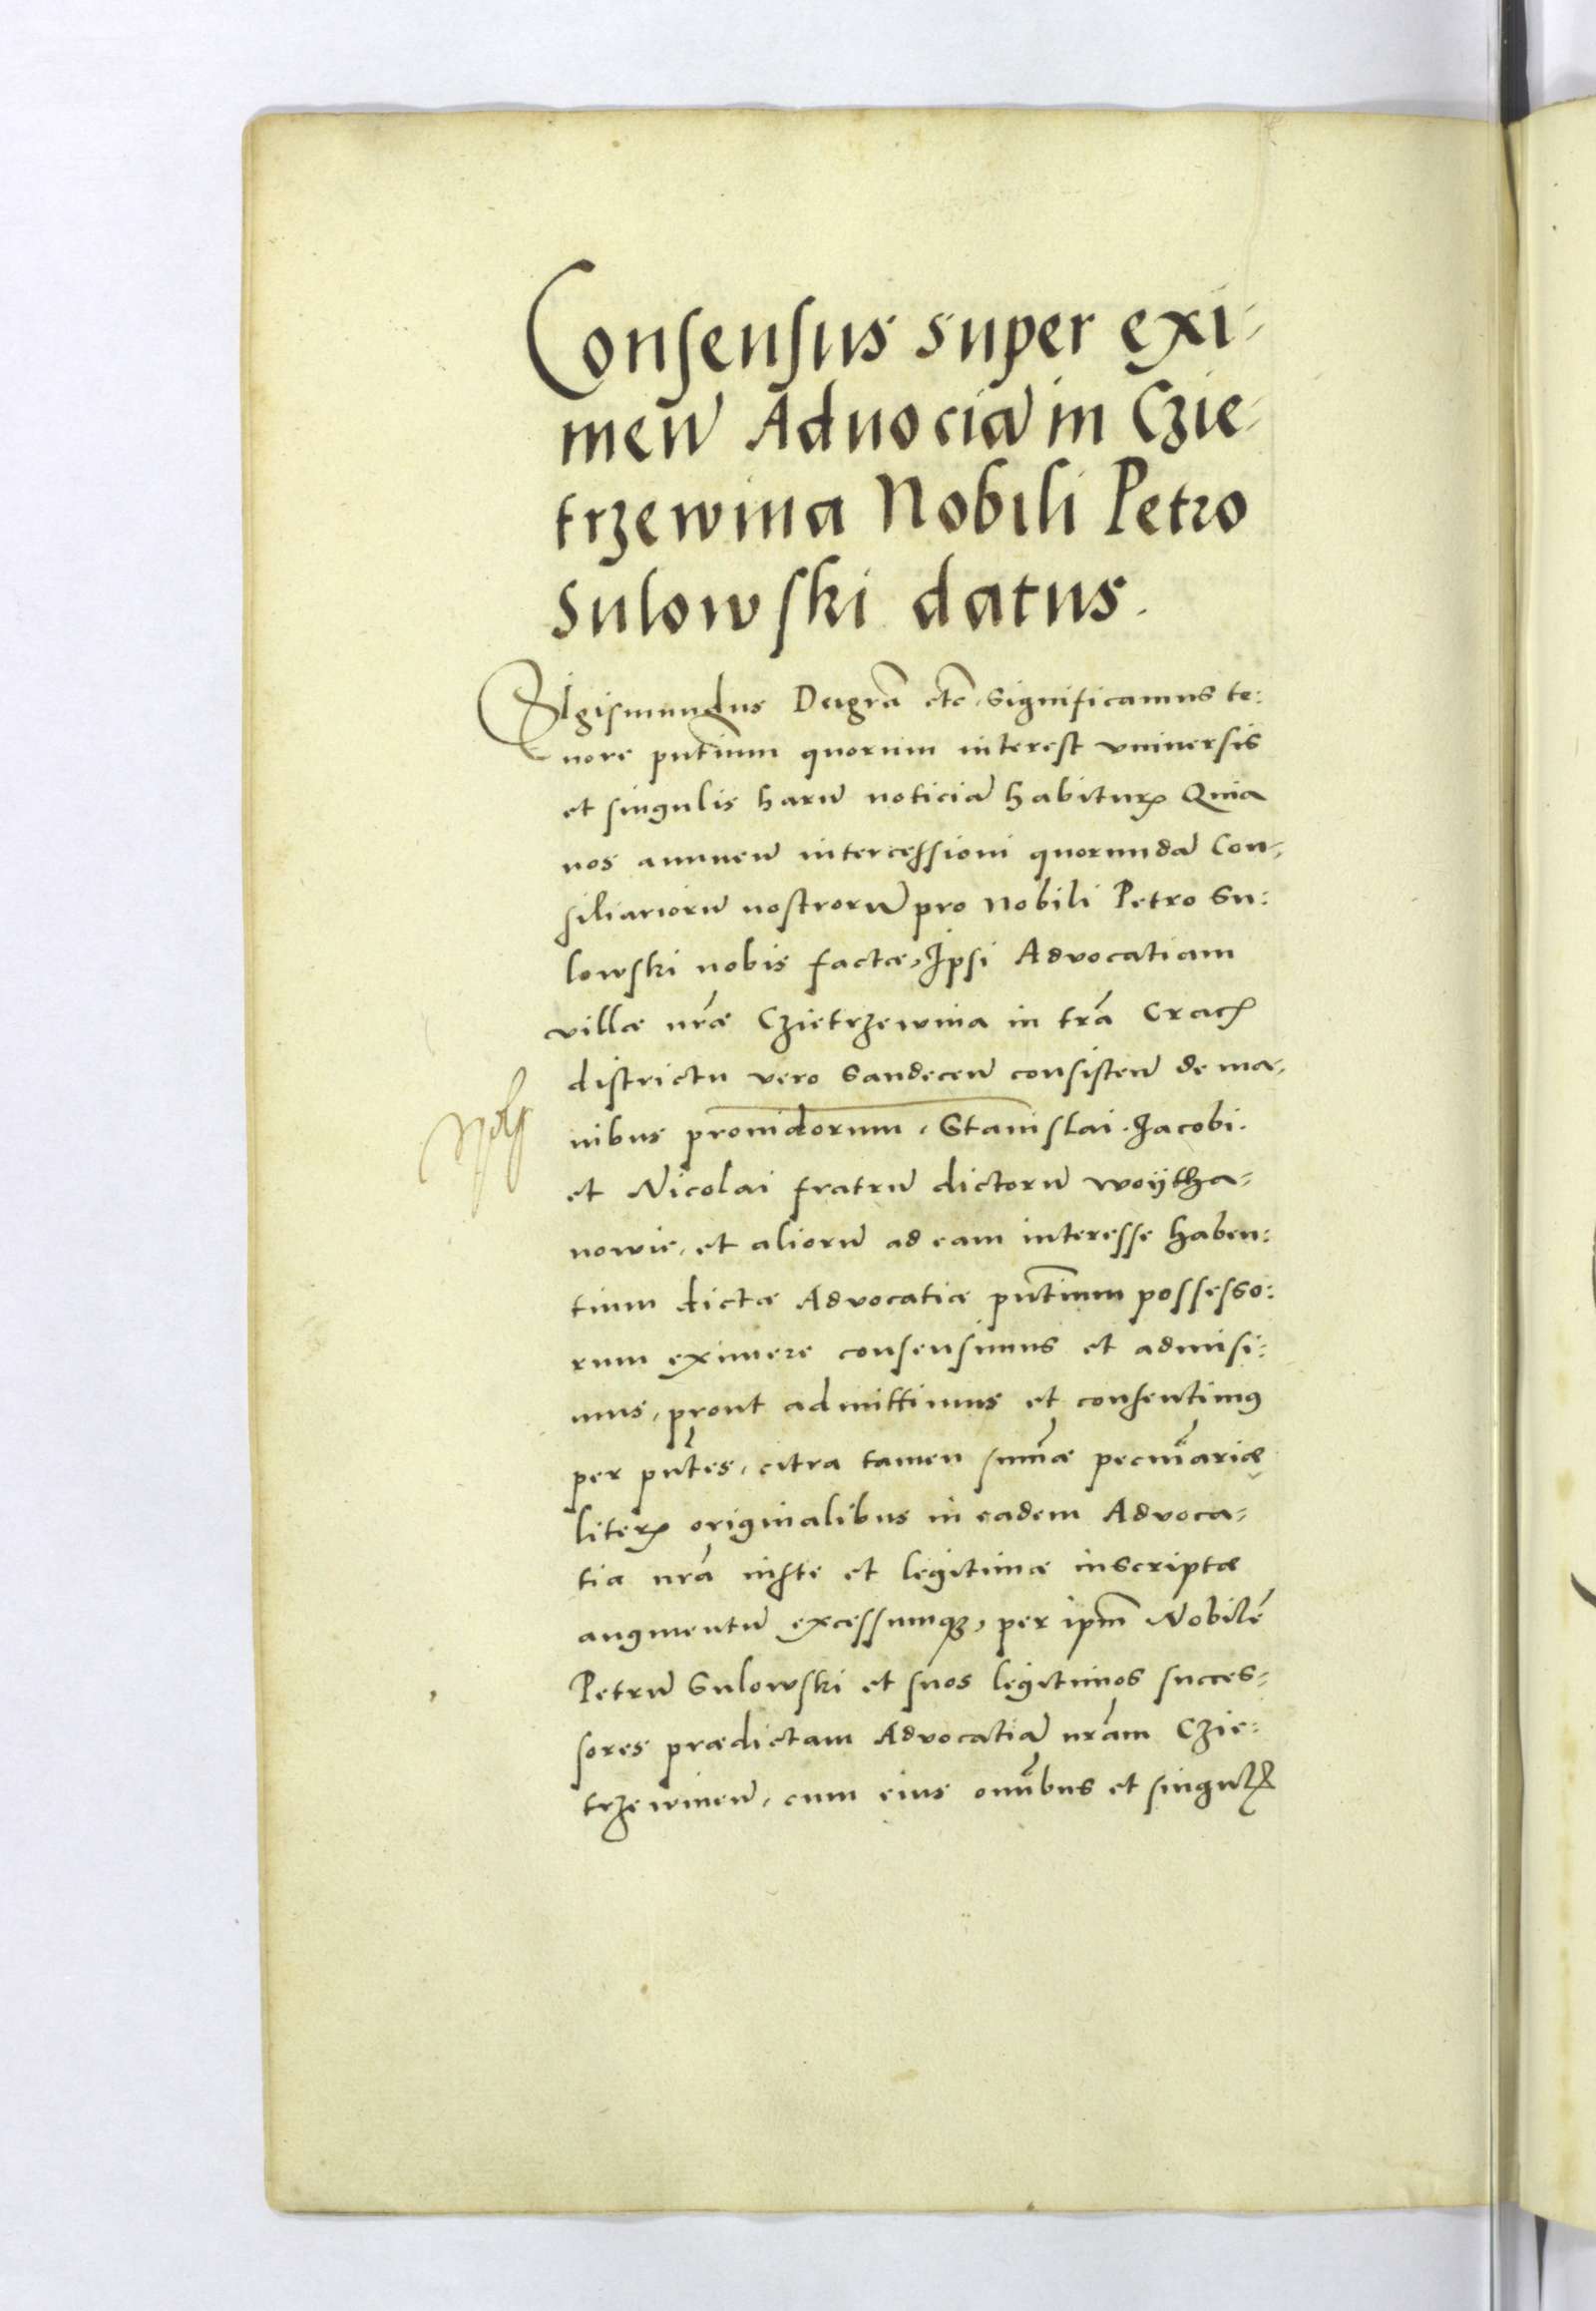 Consensus super exi-
men̄ Aduocia͂ in Czie-
trzewina Nobili Petro
Sulowski datus.
Sigismundus Dei gr̄a etc̄. significamus te:
nore pn̄tium quorum interest vniuersis
et singulis haru͂ noticia͂ habitur͂ Quia
nos annuen̄ intercessioni quorunda͂ Con-
siliarioru͂ nostroru͂ pro Nobili Petro Su:
lowski nobis factæ, Ipsi Advocatiam
villæ nr̄æ Czietrzewina in tr̄a Crac͂
districtu vero Sandecen̄ consisten̄ de ma-
nibus prouidorum, Stanislai. Jacobi.
et Nicolai fratru͂ dictoru͂ woÿtha-
nowie, et alioru͂ ad eam interesse haben:
tium dictæ Advocatiæ pn̄tium possesso:
rum eximere consensimus et admisi:
mus, prout admittimus et consentimus
per pn̄tes, citra tamen sum̄æ pecuniariæ
literis originalibus in eadem Advoca-
tia nr̄a iuste et legitimæ inscriptæ
augmentu͂ excessumq₃, per ipm̄ Nobile͂
Petru͂ Sulowski et suos legitimos succes-
sores prædictam Advocatia͂ nr̄am Czie:
trzewinen̄, cum eius omn̄ibus et singul͂